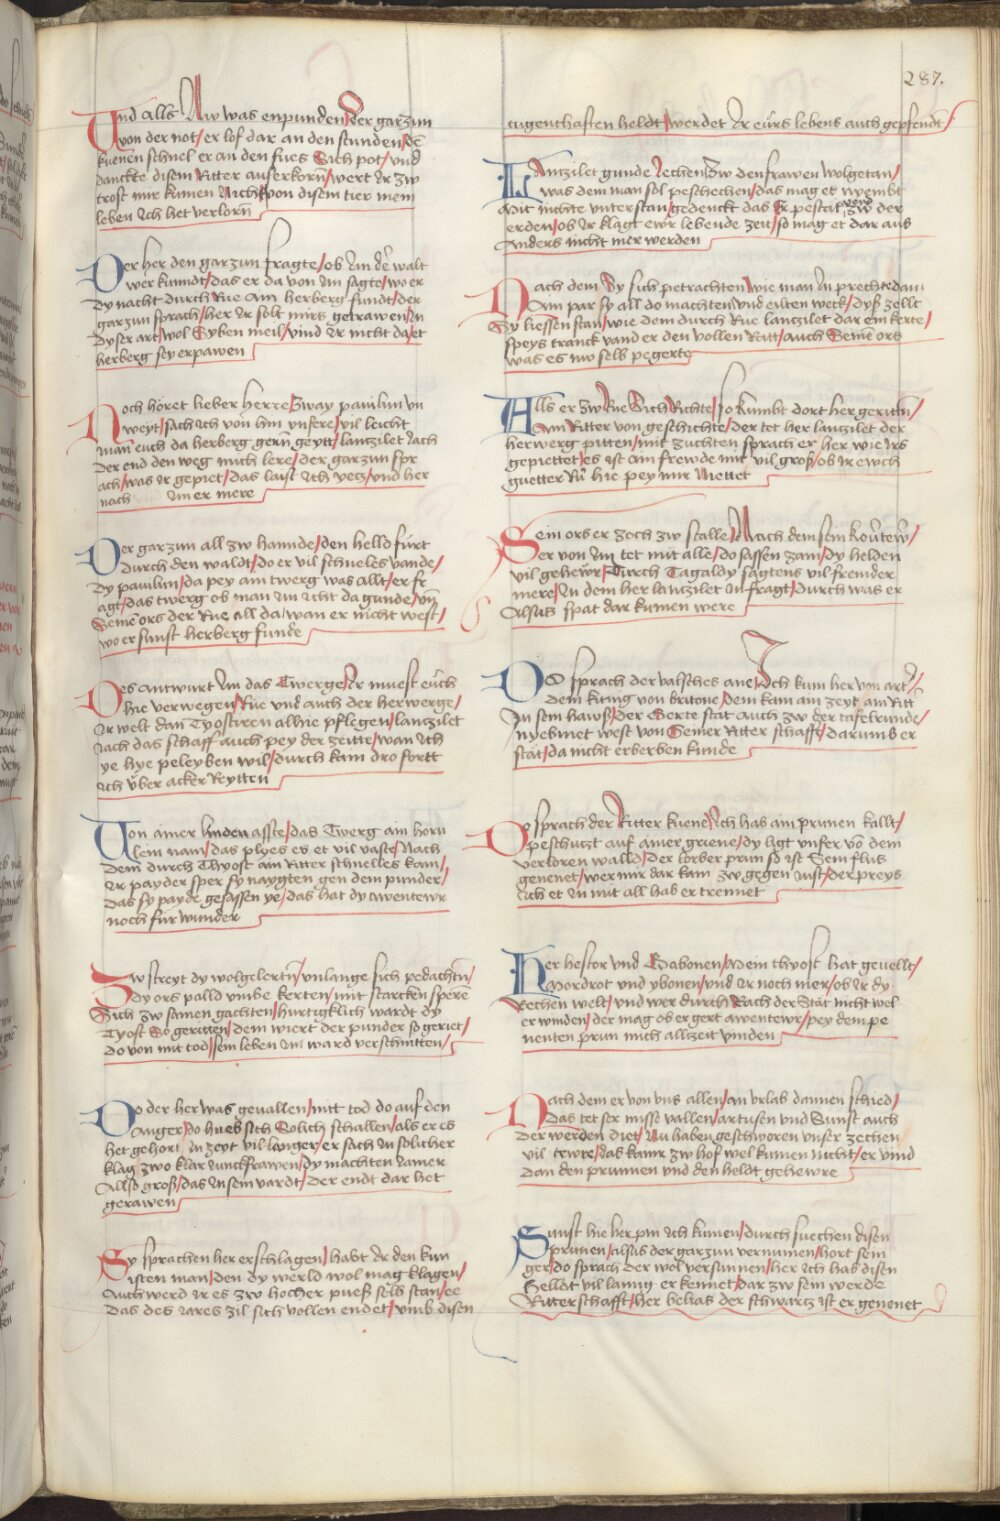 287.
Und alls Aw was enpunden / der garzun
von der not / er lof dar an den stunden / dē
kuenen schnel er an den fues Sich pot / und
danckte disem Ritter auserkorn / wert Ir zw
trost mir kumen Nicht / von disem tier mein
leben Ich het verlorn
Der her den garzun fragte / ob Im dē walt
wer kundt / das er da von Im sagte / wo er
dy nacht durch Rue ain herberg fundt / der
garzun sprach / her Ir solt mirs getrawen / In
dyser art / wol Syben meil / vind Ir nicht da / et
herberg sey erpawen
Noch höret lieber herre / zway paulun vn
weyt / sach ich von hin unsere / vil leicht
man euch da herberg gern geytt / lanzilet Nach
der end den weg mich lere / der garzun spr
ach / was Ir gepiet / das laist Ich yecz / und her
nach Im er mere
Der garzun all zw hannde / den helld fürt
durch den waldt / do er vil schnelles vande /
dy paulun / da pey ain twerg was allt / er fr
agt / das twerg ob man Im icht da gunde / vn̄
Seinē ors der Rue all da / wan er nicht west /
wo er sunst herberg funde
Des antwurt Im das Twerge / Ir muest euch
hie verwegen / Rue und auch der herwerge /
Ir welt dan Tyostiren alhie pflegen / lanzilet
Nach das schaff auch pey der zeitte / wan Ich
ye hye peleyben wil / durch kain dro fortt
Ich über acker Reytten
Von ainer linden asste / das Twerg ain horn
lein nam / das plyes es et vil vaste / Nach
dem durch Thyost ain Ritter schnelles kam /
Ir payder sper sy naygten gen dem punder /
das sy payde gesassen ye / das hat dy awentewr
noch für wunder
Zw streyt dy wolgelertn̄ / unlange sich pedachtn̄ /
dy ors palld umbe kerten / mit starcken sperē
Sich zw samen gachten / hurtigklich wardt dy
Tyost So geritten / dem wiert der punder so geriet /
do von mit tod / sein leben Im ward verschnitten /
Do der her was gevallen / mit tod do auf den
Anger / do hueb sich Solich schallen / als er es
het gehört In zeyt vil langer / er sach In solicher
klag zwo klar Iunckfrawen / dy machten Iamer
Allso groß / das In sein vardt / der endt dar het
gerawen /
Sy sprachen her erschlagen / habt Ir den kun
isten man / den dy werld wol mag klagen /
Auch werd Ir es zw hocher pueß selb stan / ee
das des Iares zil sich vollen endet / umb disen
tugenthaften heldt / werdet Ir eurs lebens auch gepfendt /
Lanzilet gunde Iechen / zw den frawen wolgetan /
was dem man sol peschechen / das mag et nyembt
mit nichte unterstan / gedenckt das Er pestat werd zw der
erden / ob Ir klagt ewr lebende zeit / so mag et dar aus
Anders nicht mer werden
Nach dem Sy sich petrachten / wie man In prechte dan
Ain par sy all do machten / und eilten weck / dyß zellt
Sy liessen stan / wie dem durch Rue lanczilet dar ein kerte /
speys tranck vand er den vollen Ratt / auch Seinē ors
was es nw selb pegerte
Alls er zw Rue Sich Richte / so kumbt dort her geritn̄ /
Ain Ritter von geschichte / der tet her lanczilet der
herwerg pitten / mit zuchten sprach er her wie Irs
gepiettet / es ist ain frewde mir vil groß / ob Ir ewch
guetter Rū hie pey mir Niettet
Sein ors er zoch zw stalle / Nach dem sein kovertewr /
Er von Im tet mit alle / do sassen zam / dy helden
vil gehewr / Durch Tagaldy sagtens vil fremder
mere / In dem her lanczilet In fragt / durch was er
Alsus spat dar kumen were
Do sprach der valsches ane / Ich kum her von art /
dem kunig von britone / dem kam ain zeyt ain Ritt
In sein hawß / der Gerte stat auch zw der tafelrunde /
nyebmet west von Seiner Ritter schafft / darumb er
stat / da nicht erberben kunde
Do sprach der Ritter kuene / Ich hab ain prunen kallt /
peschuczt auf ainer gruene / dy ligt unfer vō dem
verloren walld / der lorber prun so ist Sein flus
genenet / wer mir dar kam zw gegen Iust / der preys
Ich et In mit all hab er trennet
Her hestor und Gabonen / Mein thyost hat gevellt /
Mordrot und ybonen / und Ir noch mer / ob Ir dy
Rechen welt / und wer durch Rach der Stat nicht wel
er winden / der mag ob er gert awentewr / pey dem pe
nenten prun mich allzeit vinden
Nach dem er von uns allen / an urlab dannen schied /
Das tet ser misse vallen / artusen und Sunst auch
der werden diet / Nu haben geschworen unser zechen
vil tewre / das kainr zw hof wel kumen nicht / er vind
dan den prunnen und den heldt gehewre
Sunst hie her pin Ich kumen / durch suechen disen
prunen / alsus der garzun vernumen / hort sein
ger / do sprach der wol versunnen / her Ich hab disen
Helldt vil lannig er kennet / dar zw sein werde
Ritterschafft / her belias der schwartz ist er genenet